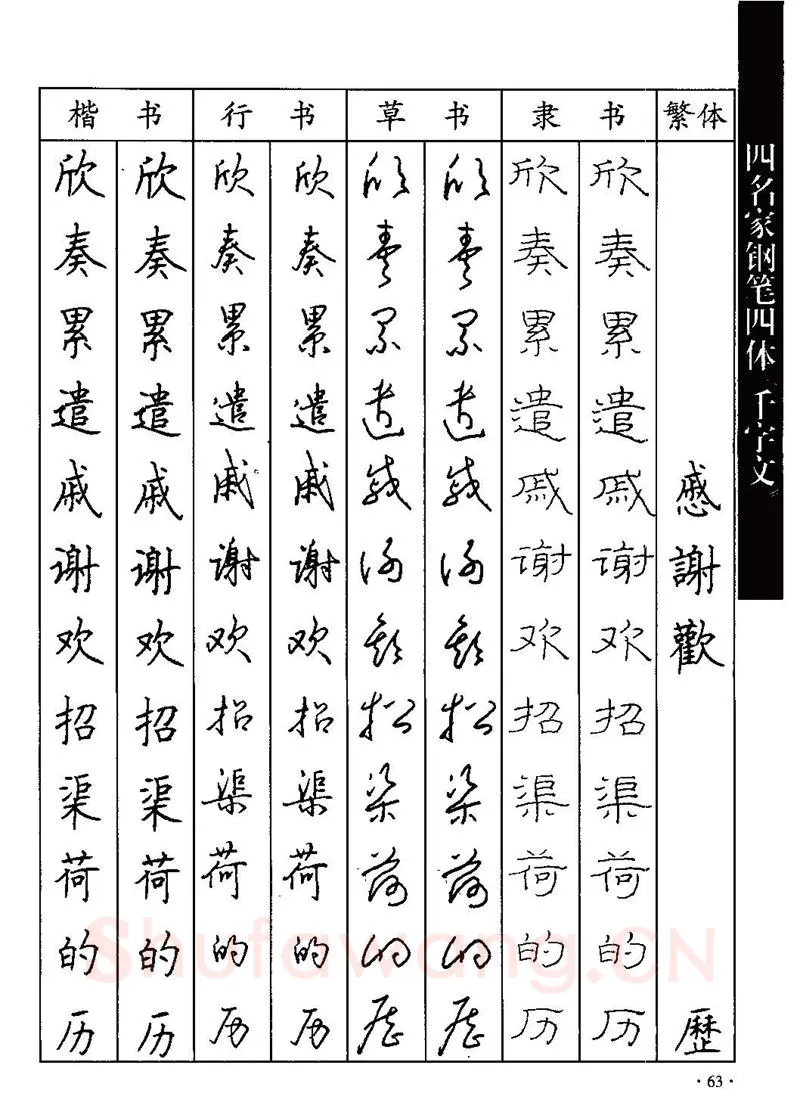 四名家钢笔四体 千字文
楷书 行书 草书 隶书 繁体
欣 欣 欣 欣 欣 欣 欣 欣
奏 奏 奏 奏 奏 奏 奏 奏
累 累 累 累 累 累 累 累
遣 遣 遣 遣 遣 遣 遣 遣
戚 戚 戚 戚 戚 戚 戚 戚 慼
谢 谢 谢 谢 谢 谢 谢 谢 謝
欢 欢 欢 欢 欢 欢 欢 欢 歡
招 招 招 招 招 招 招 招
渠 渠 渠 渠 渠 渠 渠 渠
荷 荷 荷 荷 荷 荷 荷 荷
的 的 的 的 的 的 的 的
历 历 历 历 历 历 历 历 歷
Shufawang.CN
·63·